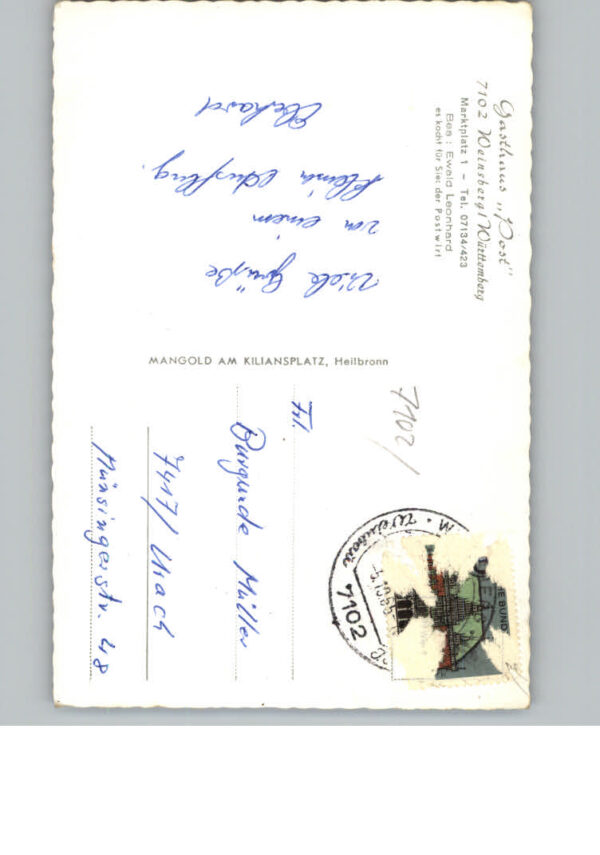 Gasthaus „Post"
7102 Weinsberg/Württemberg
Marktplatz 1 – Tel. 07134/423
Bes.: Ewald Leonhard
es kocht für Sie: der Postwirt
Viele Grüße
von einem
kleinen Ausflug.
Eberhard
MANGOLD AM KILIANSPLATZ, Heilbronn
7102/
Frl.
Burgunde Müller
7417/ Urach
Münsingerstr. 48
7102